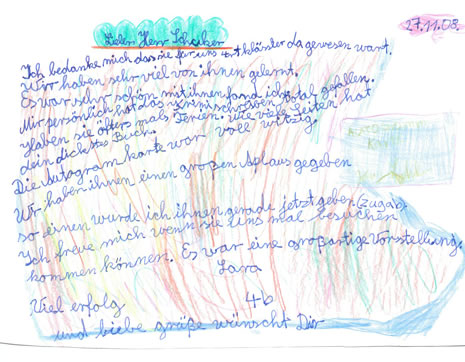 27.11.08.
Lieber Herr Schreiber
Ich bedanke mich das sie für uns 4t klässler da gewesen wart.
Wir haben sehr viel von ihnen gelernt.
Es war sehr schön mit ihnen fand ich.
Mir persönlich hat das schreiben total gefallen.
Haben sie öfters mals Ferien. Wie viele Seiten hat
dein dickstes Buch.
Die Autogram karte war voll witzig.
Wir haben ihnen einen großen Aplaus gegeben
so einen wurde ich ihnen gerade jetzt geben. (zugab)
Ich freue mich wenn sie uns mal besuchen
kommen können. Es war eine großastige Vorstellung.
Lara
4b
Viel erfolg
und liebe grüße wünscht Dir